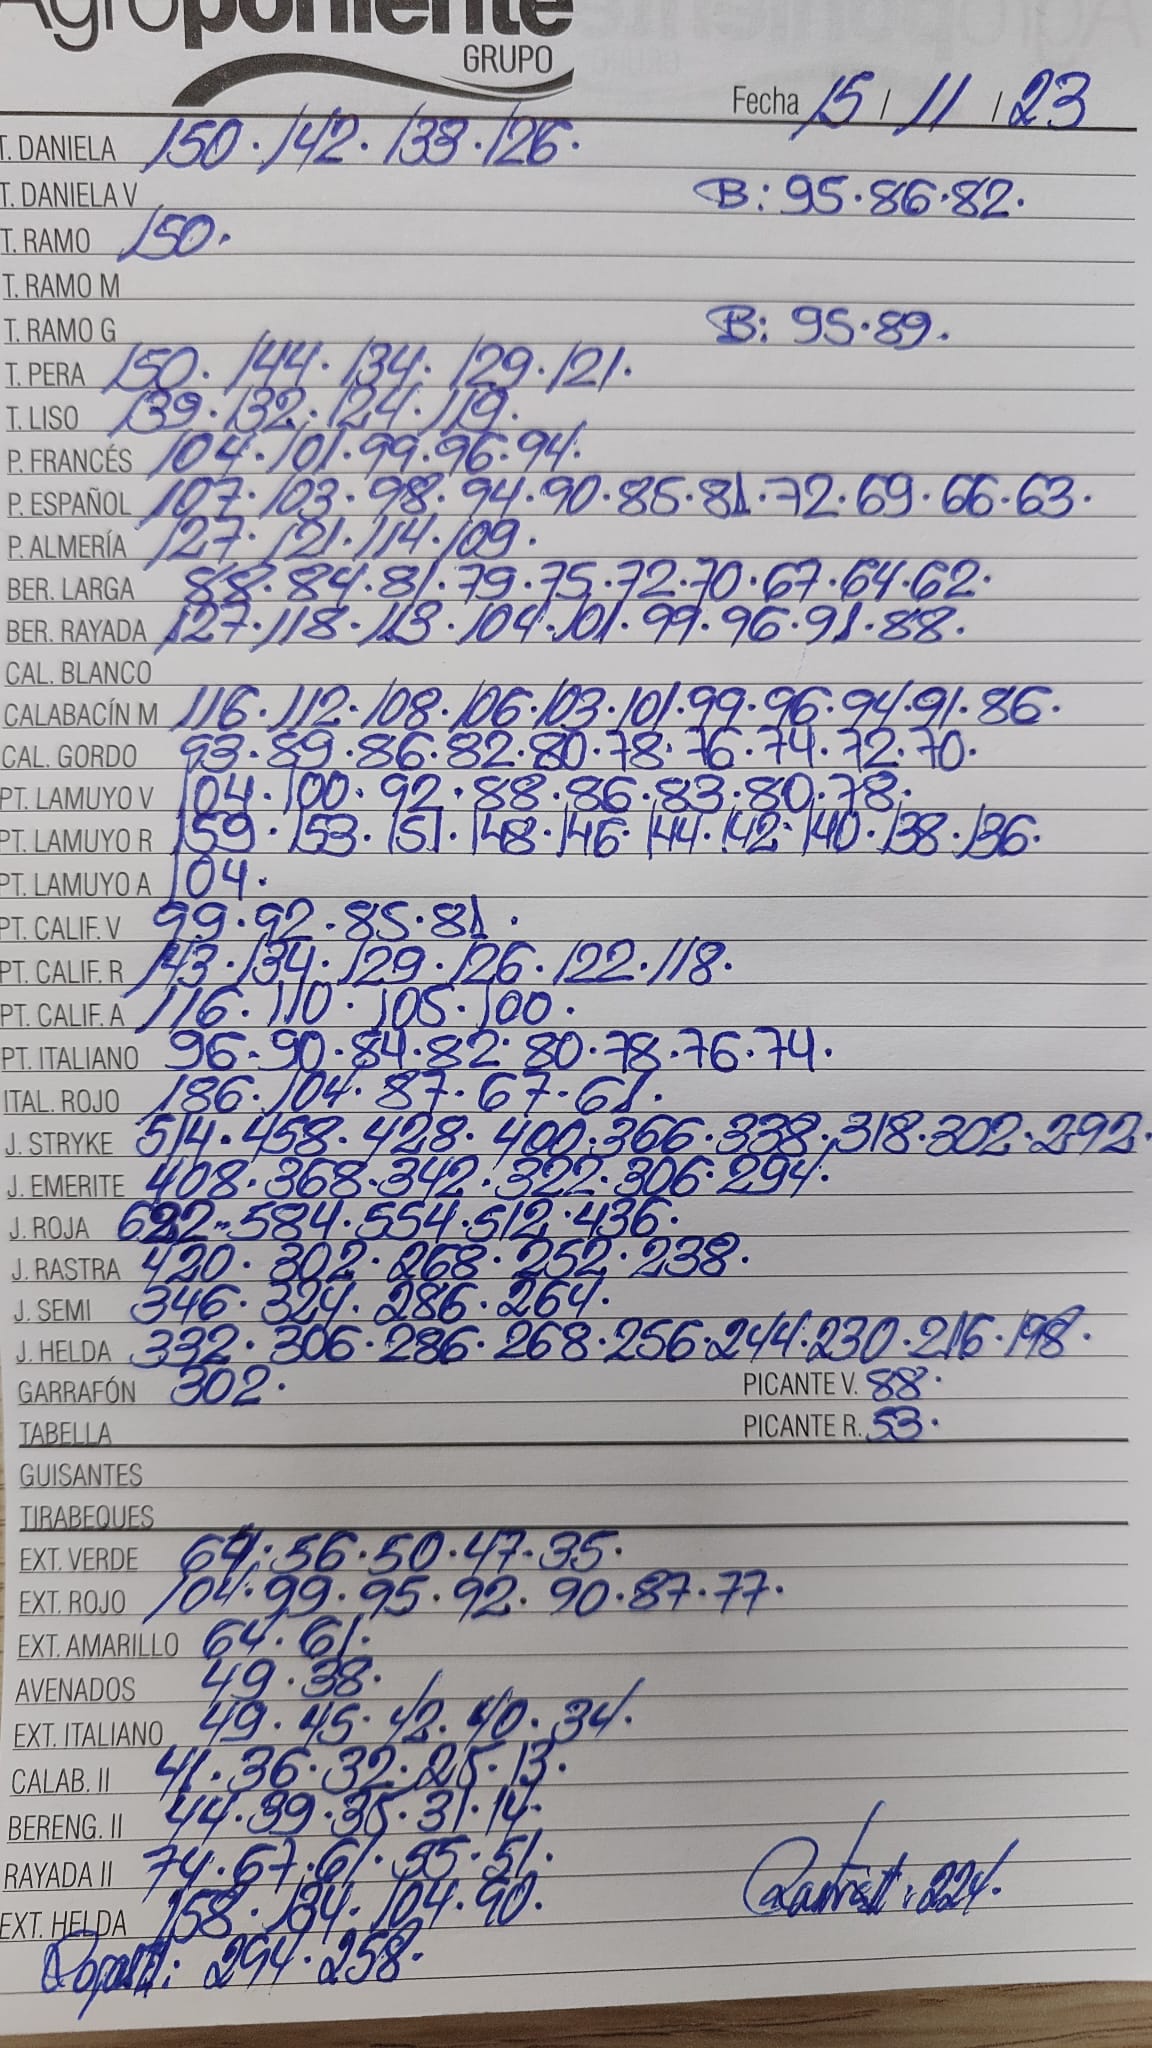 Agroponiente
GRUPO
Fecha 15 / 11 / 23
T. DANIELA 150. 142. 138. 126.
T. DANIELA V B: 95. 86. 82.
T. RAMO 150.
T. RAMO M
T. RAMO G B: 95. 89.
T. PERA 150. 144. 134. 129. 121.
T. LISO 139. 132. 124. 119.
P. FRANCÉS 104. 101. 99. 96. 94.
P. ESPAÑOL 107. 103. 98. 94. 90. 85. 81. 72. 69. 66. 63.
P. ALMERÍA 127. 121. 114. 109.
BER. LARGA 88. 84. 81. 79. 75. 72. 70. 67. 64. 62.
BER. RAYADA 127. 118. 113. 104. 101. 99. 96. 91. 88.
CAL. BLANCO
CALABACÍN M 116. 112. 108. 106. 103. 101. 99. 96. 94. 91. 86.
CAL. GORDO 93. 89. 86. 82. 80. 78. 76. 74. 72. 70.
PT. LAMUYO V 104. 100. 92. 88. 86. 83. 80. 78.
PT. LAMUYO R 159. 153. 151. 148. 146. 144. 142. 140. 138. 136.
PT. LAMUYO A 104.
PT. CALIF. V 99. 92. 85. 81.
PT. CALIF. R 143. 134. 129. 126. 122. 118.
PT. CALIF. A 116. 110. 105. 100.
PT. ITALIANO 96. 90. 84. 82. 80. 78. 76. 74.
ITAL. ROJO 186. 104. 87. 67. 61.
J. STRYKE 514. 458. 428. 400. 366. 338. 318. 302. 292.
J. EMERITE 408. 368. 342. 322. 306. 294.
J. ROJA 584. 554. 512. 436.
J. RASTRA 420. 302. 268. 252. 238.
J. SEMI 346. 324. 286. 264.
J. HELDA 332. 306. 286. 268. 256. 244. 230. 216. 198.
GARRAFÓN 302. PICANTE V. 88.
TABELLA PICANTE R. 53.
GUISANTES
TIRABEQUES
EXT. VERDE 64. 56. 50. 47. 35.
EXT. ROJO 104. 99. 95. 92. 90. 87. 77.
EXT. AMARILLO 64. 61.
AVENADOS 49. 38.
EXT. ITALIANO 49. 45. 42. 40. 34.
CALAB. II 41. 36. 32. 25. 13.
BERENG. II 44. 39. 35. 31. 14.
RAYADA II 74. 67. 61. 55. 51.
EXT. HELDA 158. 134. 104. 90. : 224.
: 294. 258.